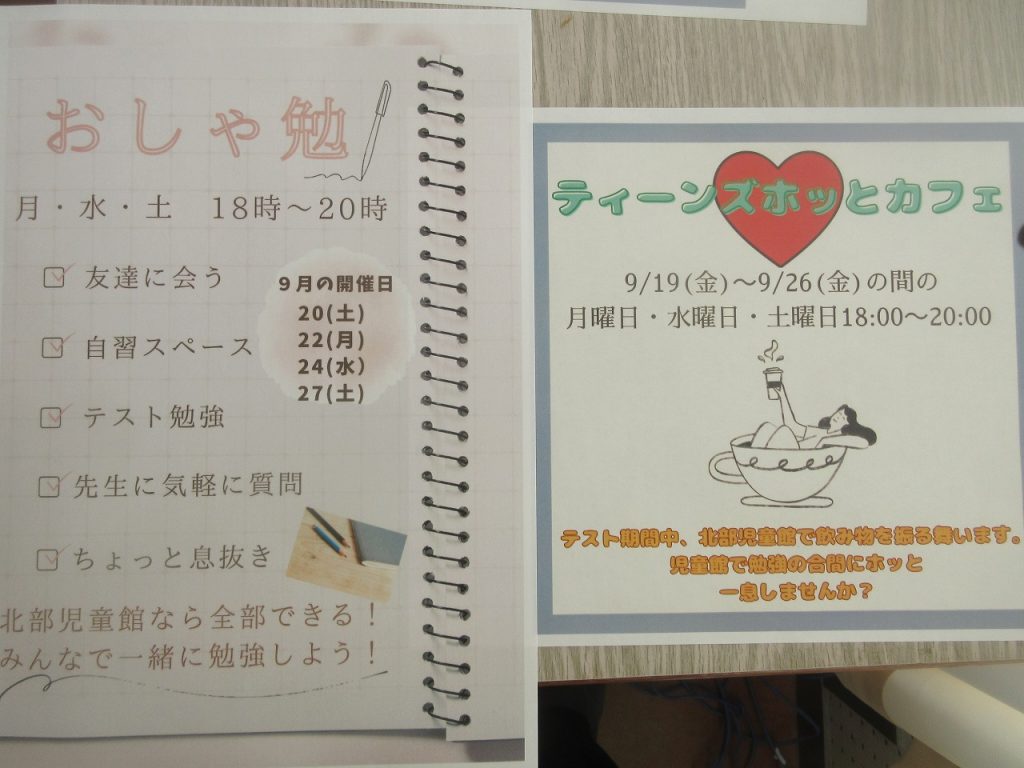 おしゃ勉
月・水・土 18時～20時
友達に会う
自習スペース
テスト勉強
先生に気軽に質問
ちょっと息抜き
9月の開催日
20(土)
22(月)
24(水)
27(土)
北部児童館なら全部できる！
みんなで一緒に勉強しよう！
ティーンズホッとカフェ
9/19(金)～9/26(金)の間の
月曜日・水曜日・土曜日18:00～20:00
テスト期間中、北部児童館で飲み物を振る舞います。
児童館で勉強の合間にホッと
一息しませんか？